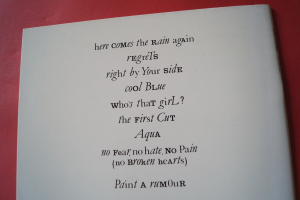 here COMES the RAIN again
rEgrETS
right by Your SidE
coOl BLue
WHO'S thaT girL?
the First CuT
AquA
no FeaR, no hate, NO PaiN
(no BrOkeN heARTs)
PaiNt A RuMOuR